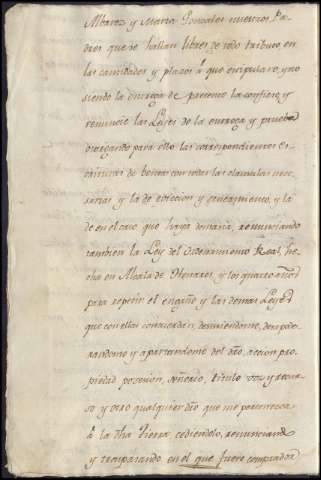 Alvarez y Maria Gonzales nuestros Pa-
dres que se hallan libres de todo tributo en
las cantidades y plazos â que estipulare, y no
siendo la entrega de presente la confiese, y
renuncie las Leyes de la entrega y prueba
otorgando para ello las correspondientes es-
crituras de ventas con todas las clausulas nece-
sarias y la de eviccion y saneamiento, y la
de en el caso que haya demasia, renunciando
tambien la Ley del Ordenamiento Real, he-
cha en Alcala de Henares, y los quatro años
para repetir el engaño y las demas Leyes
que con ellas concuerdan, desistiendome, desapode-
randome y apartandome del dro, accion pro-
piedad posesion, señorio, titulo voz y recur-
so y otro qualquier dro que me pertenezca
â la dha tierra cediendolo, renunciando
y traspasando en el que fuere comprador